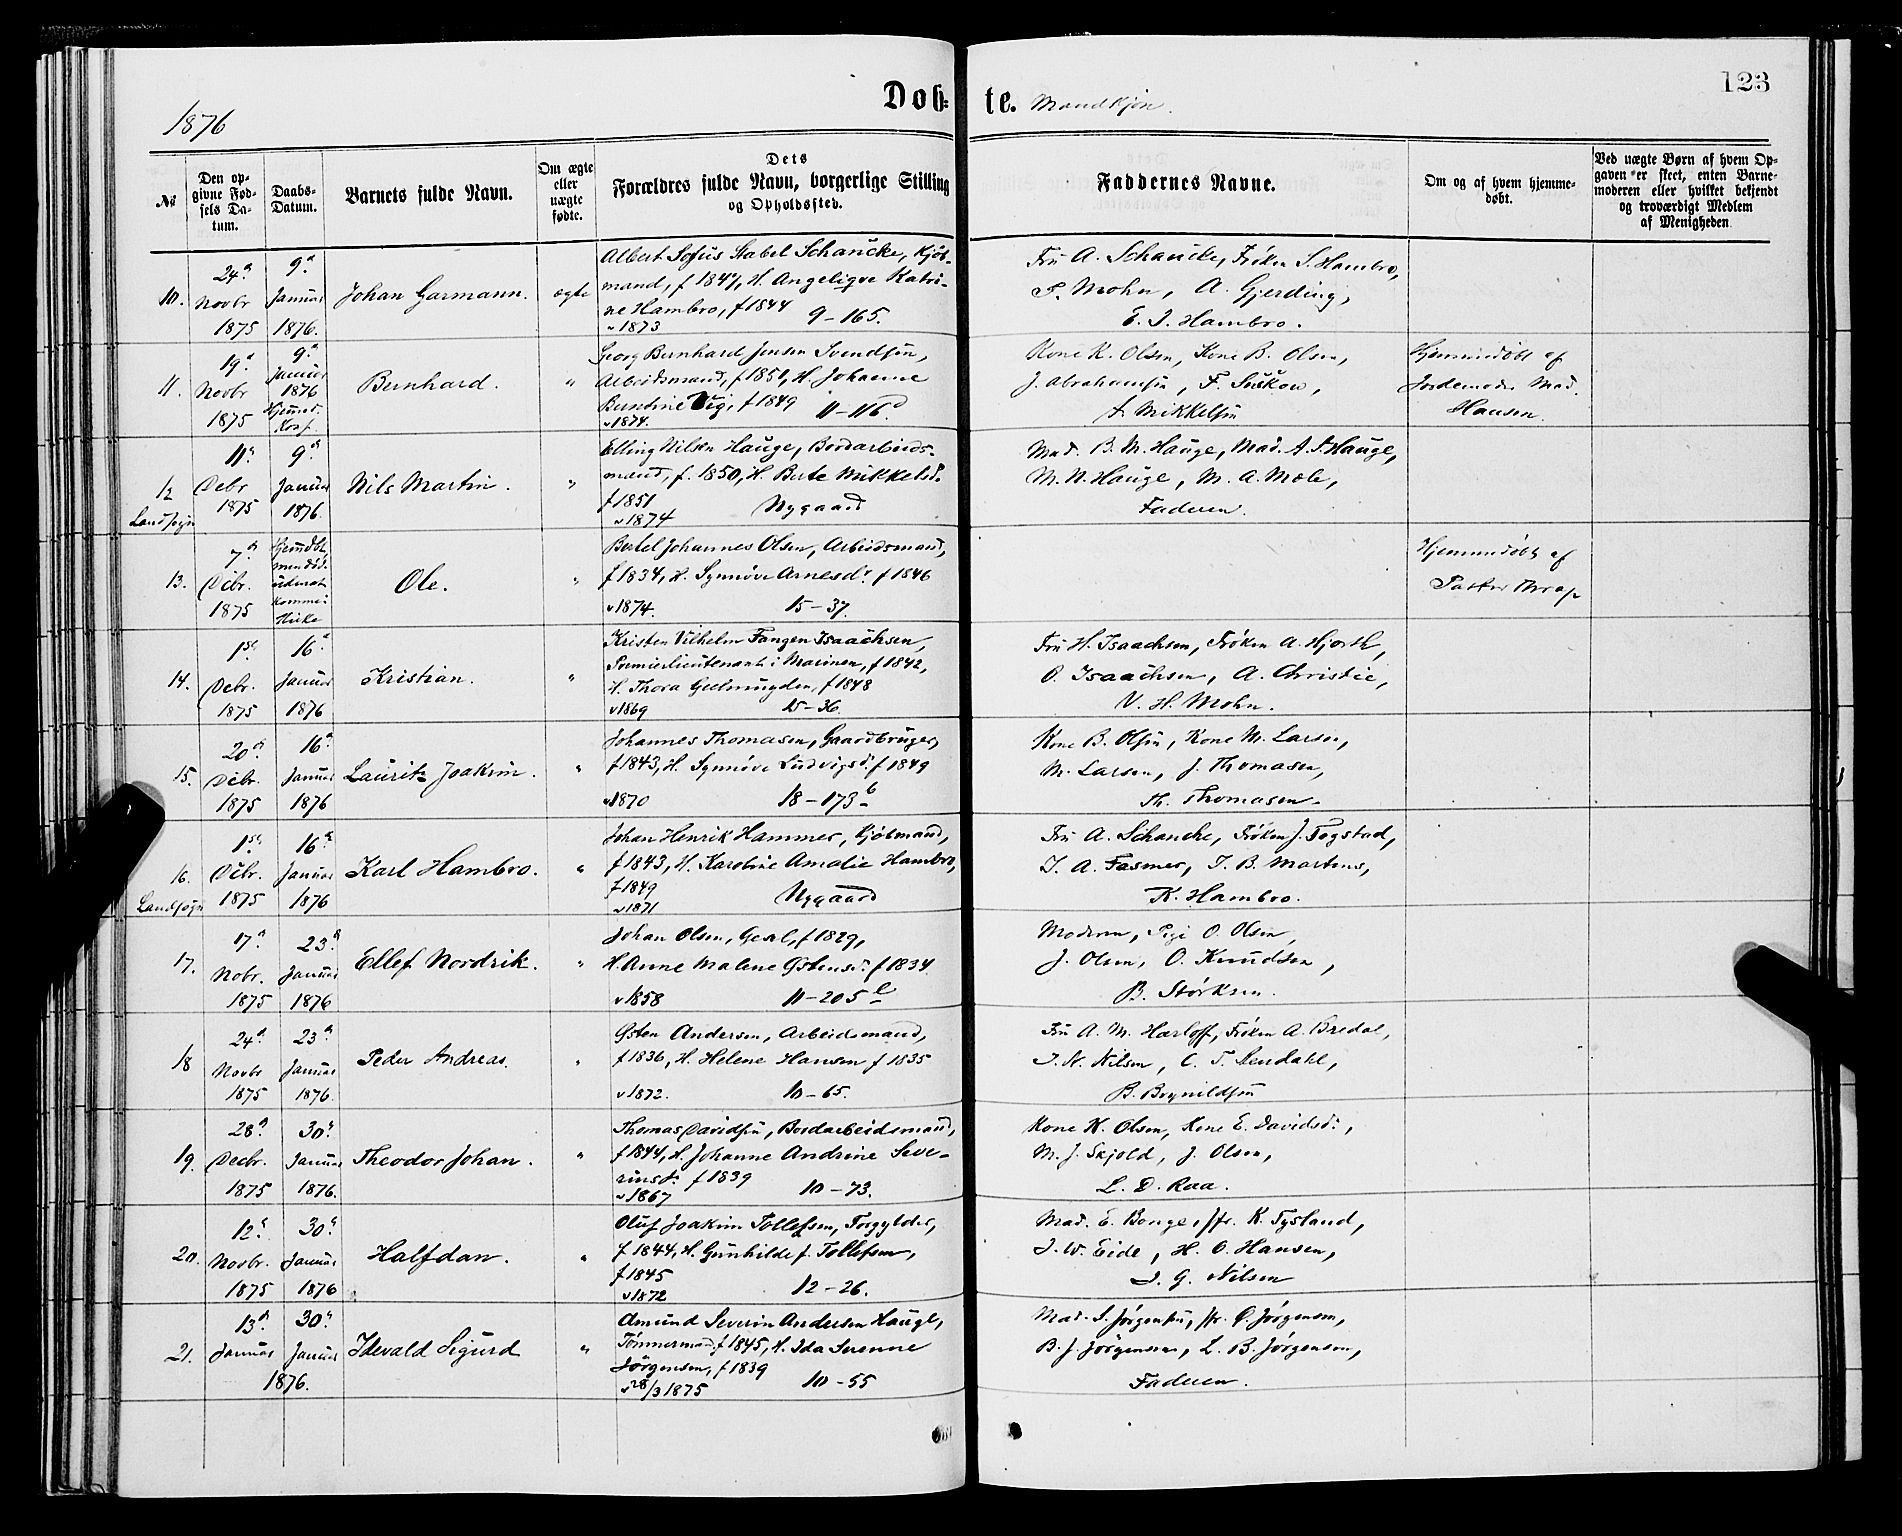 123
1876
Døb- te. Mandkjøn.
No
Den opgivne Fødsels Datum.
Daabs-Datum.
Barnets fulde Navn.
Om ægte eller uægte fødte.
Dets Forældres fulde Navn, borgerlige Stilling og Opholdssted.
Faddernes Navne.
Om og af hvem hjemmedøbt.
Ved uægte Børn af hvem Opgaven er skeet, enten Barnemoderen eller hvilket bekjendt og troværdigt Medlem af Menigheden
10. 24d Novbr 1875
9d Januar 1876.
Johan Garmann.
ægte
Albert Sofus Stabel Schancke, Kjøb-
mand, f 1847, H. Angeliqve Katri-
ne Hambro, f 1844
v 1873 9-165.
Fru A. Schancke, Frøken S. Hambro,
P. Mohn, A. Gjerding,
E. I. Hambro.
11. 19d Novbr 1875
9d Januar 1876
Bernhard.
"
Georg Bernhard Jensen Svendsen,
Arbeidsmand, f 1851, H. Johanne
Berntine Vig, f 1849
v 1874. 11-116d
Kone K. Olsen, Kone B. Olsen,
J. Abrahamsen, F. Suskow,
A Mikkelsen
Hjemmedøbt af
Jordemoder Mad.
Hansen.
12 Landsogn 11d Debr 1875
9d Januar 1876.
Nils Martin.
"
Elling Nilsen Hauge, Bordarbeids-
mand, f. 1850, H. Berte Mikkelsd.
f 1851
v 1874 Nygaard
Mad. B. M. Hauge, Mad. A. S. Hauge,
M. N. Hauge, M. A. Mole,
Faderen.
13. 7d Debr. 1875
Hjemdbt,
men død
uden at
komme i
Kirke
Ole.
"
Bertel Johannes Olsen, Arbeidsmand,
f 1834, H. Synnøve Arnesdr f 1846
v 1874. 15-37.
Hjemmedøbt af
Pastor Thrap
14. 1ste Debr. 1875
16d Januar 1876
Kristian.
"
Kristen Vilhelm Fangen Isaachsen,
Premierlieutenant i Marinen, f 1842,
H. Thora Geelmuyden, f 1848
v 1869 15-36.
Fru H. Isaachsen, Frøken A. Hjorth,
O. Isaachsen, A. Christie,
V. H. Mohn.
15. 20d Debr. 1875
16d Januar 1876
Lauritz Joakim.
"
Johannes Thomasen, Gaardbruger,
f 1843, H. Synnøve Ludvigsd. f 1849
v 1870 18-173b
Kone B. Olsen, Kone M. Larsen,
M. Larsen, J. Thomasen,
Th. Thomasen.
16. Landsogn 1ste Debr. 1875
16d Januar 1876
Karl Hambro.
"
Johan Henrik Hammer, Kjøbmand,
f 1843, H. Karoline Amalie Hambro,
f 1849
v 1871 Nygaard
Fru A. Schancke, Frøken J. Fogstad,
J. A. Fasmer, J. B. Martens,
K. Hambro.
17. 17d Nobr. 1875
23d Januar 1876
Ellef Nordrik.
"
Johan Olsen, Gesel, f 1829,
H. Anne Malene Østensd. f 1834
v 1858 11-205e
Moderen, Pige O Olsen,
J. Olsen, O. Knudsen,
B. Størksen.
18 24d Novbr 1875
23d Januar 1876.
Peder Andreas.
"
Østen Andersen, Arbeidsmand,
f 1836, H. Helene Hansen f 1835
v 1872. 10-65.
Fru A. M. Harloff, Frøken A. Bredal,
J. N. Nilsen, C. T. Stendahl,
B. Brynildsen
19. 28d Decbr. 1875
30d Januar 1876.
Theodor Johan.
"
Thomas Davidsen, Bordarbeidsmand,
f 1844, H. Johanne Andrine Seve-
rinsd. f 1839
v 1867 10-73.
Kone K. Olsen, Kone E. Davidsd.,
M. J. Skjold, J. Olsen,
L. D. Raa.
20. 12d Novbr. 1875
30d Januar 1876
Halfdan.
"
Oluf Joakim Tollefsen, Forgylder,
f 1844, H. Gunhilde f. Tollefsen,
f 1845
v 1872 12-26.
Mad. E. Bonge, Jfr. K. Tysland,
J. W. Eide, H. O. Hansen,
J. G. Nilsen
21. 13d Januar
30d Januar
1876.
Idevald Sigurd
"
Amund Severin Andersen Hauge,
Tømmermand, f 1845, H. Ida Serenne
Jørgensen, f 1839
v 28/3 1875 10-55
Mad. S. Jørgensen, Jfr. O. Jørgensen,
B. J. Jørgensen, L. B. Jørgensen,
Faderen.